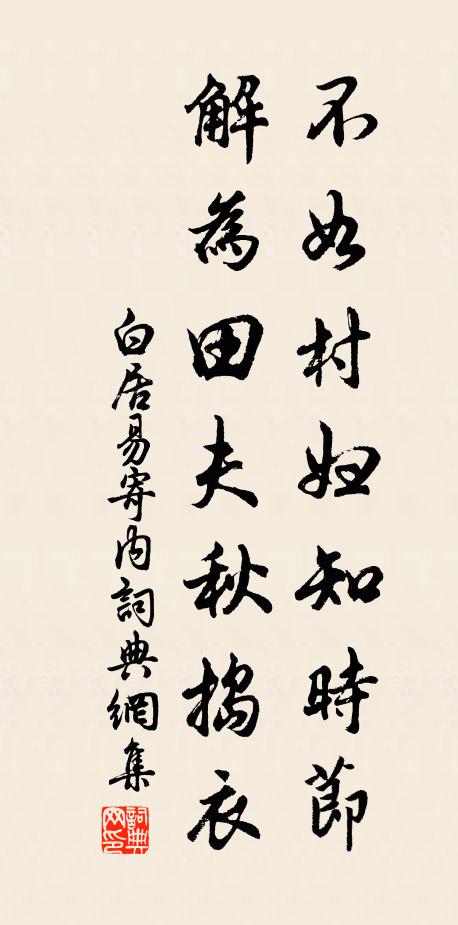 不如村妇知時節
解為田夫秋搗衣
白居易寄内詞典網集
詞典網印